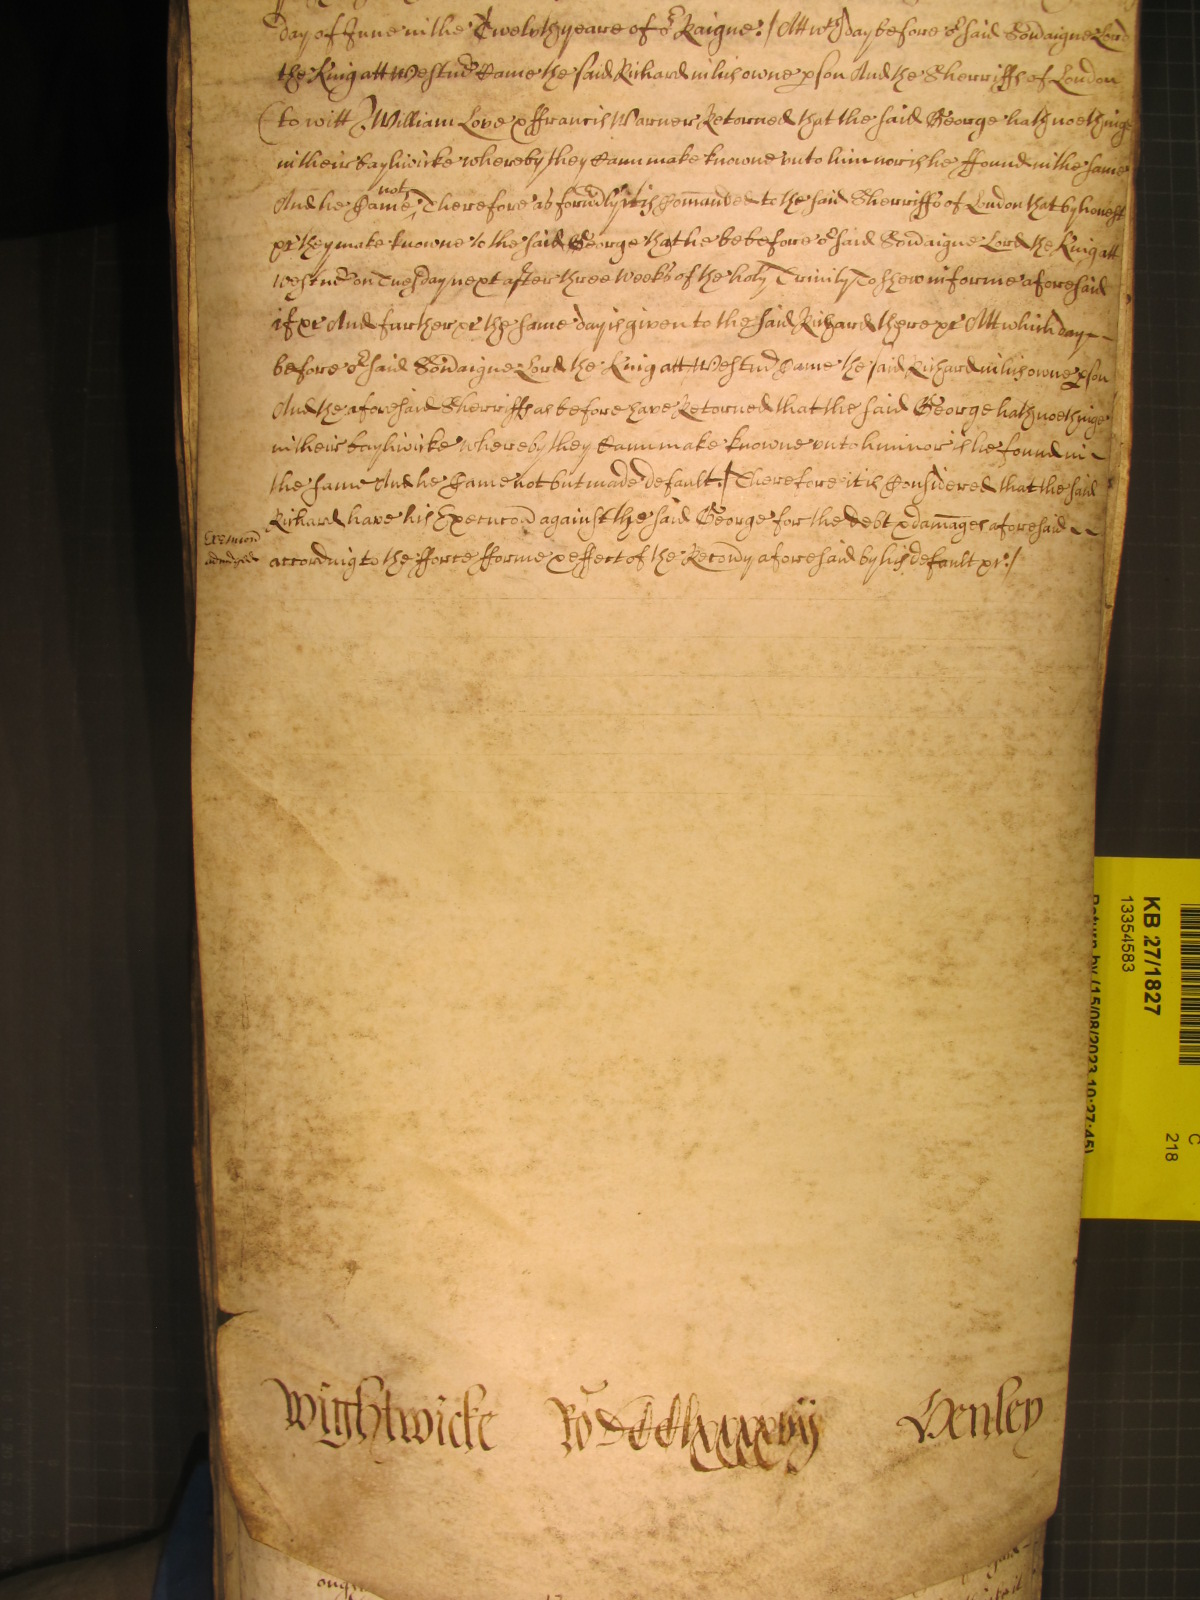 day of June in the Twelvth yeare of or Raigne:/ Att wch day before or said Sovaigne Lord
the King att Westmr Came the said Richard in his owne pson And the Sherriffs of London
(to witt) William Love & ffrancis Warner Retorned that the said George hath noethinge
in their bayliwicke whereby they Cann make knowne unto him nor is he ffound in the same
And he Came not Therefore as formly it is Comanded to the said Sherriffs of London that by honest
&c they make knowne to the said George that he be before or said Sovaigne Lord the King att
Westmr on Tuesday next after three weeks of the holy Trinity To shew in forme aforesaid
if &c And further &c the same day is given to the said Richard there &c Att which day
before or said Sovaigne Lord the King att Westmr Came the said Richard in his owne pson
And the aforesaid Sherriffs as before have Retorned that the said George hath noethinge
in their bayliwicke whereby they Cann make knowne unto him nor is he found in
the same And he Came not but made default:/ Therefore it is Considered that the said
Richard have his Execucon against the said George for the debt & damages aforesaid
Execucon
adiudged
according to the fforce fforme & effect of the Recovy aforesaid by his default &c:/
Wightwicke Ro DCClxxxxvij Henley
KB 27/1827
13354583
Return by (15/08/2023 10:27:45)
C
218